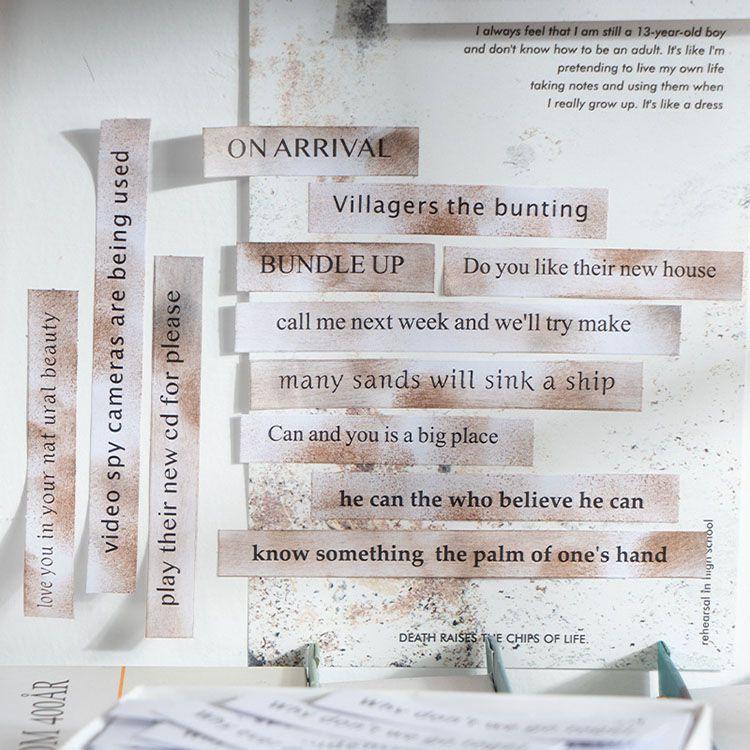 I always feel that I am still a 13-year-old boy
and don't know how to be an adult. It's like I'm
pretending to live my own life
taking notes and using them when
I really grow up. It's like a dress
ON ARRIVAL
Villagers the bunting
BUNDLE UP
Do you like their new house
call me next week and we'll try make
many sands will sink a ship
Can and you is a big place
he can the who believe he can
know something the palm of one's hand
love you in your nat ural beauty
video spy cameras are being used
play their new cd for please
rehearsal in high school
DEATH RAISES THE CHIPS OF LIFE.
400ÅR
Why don't we go